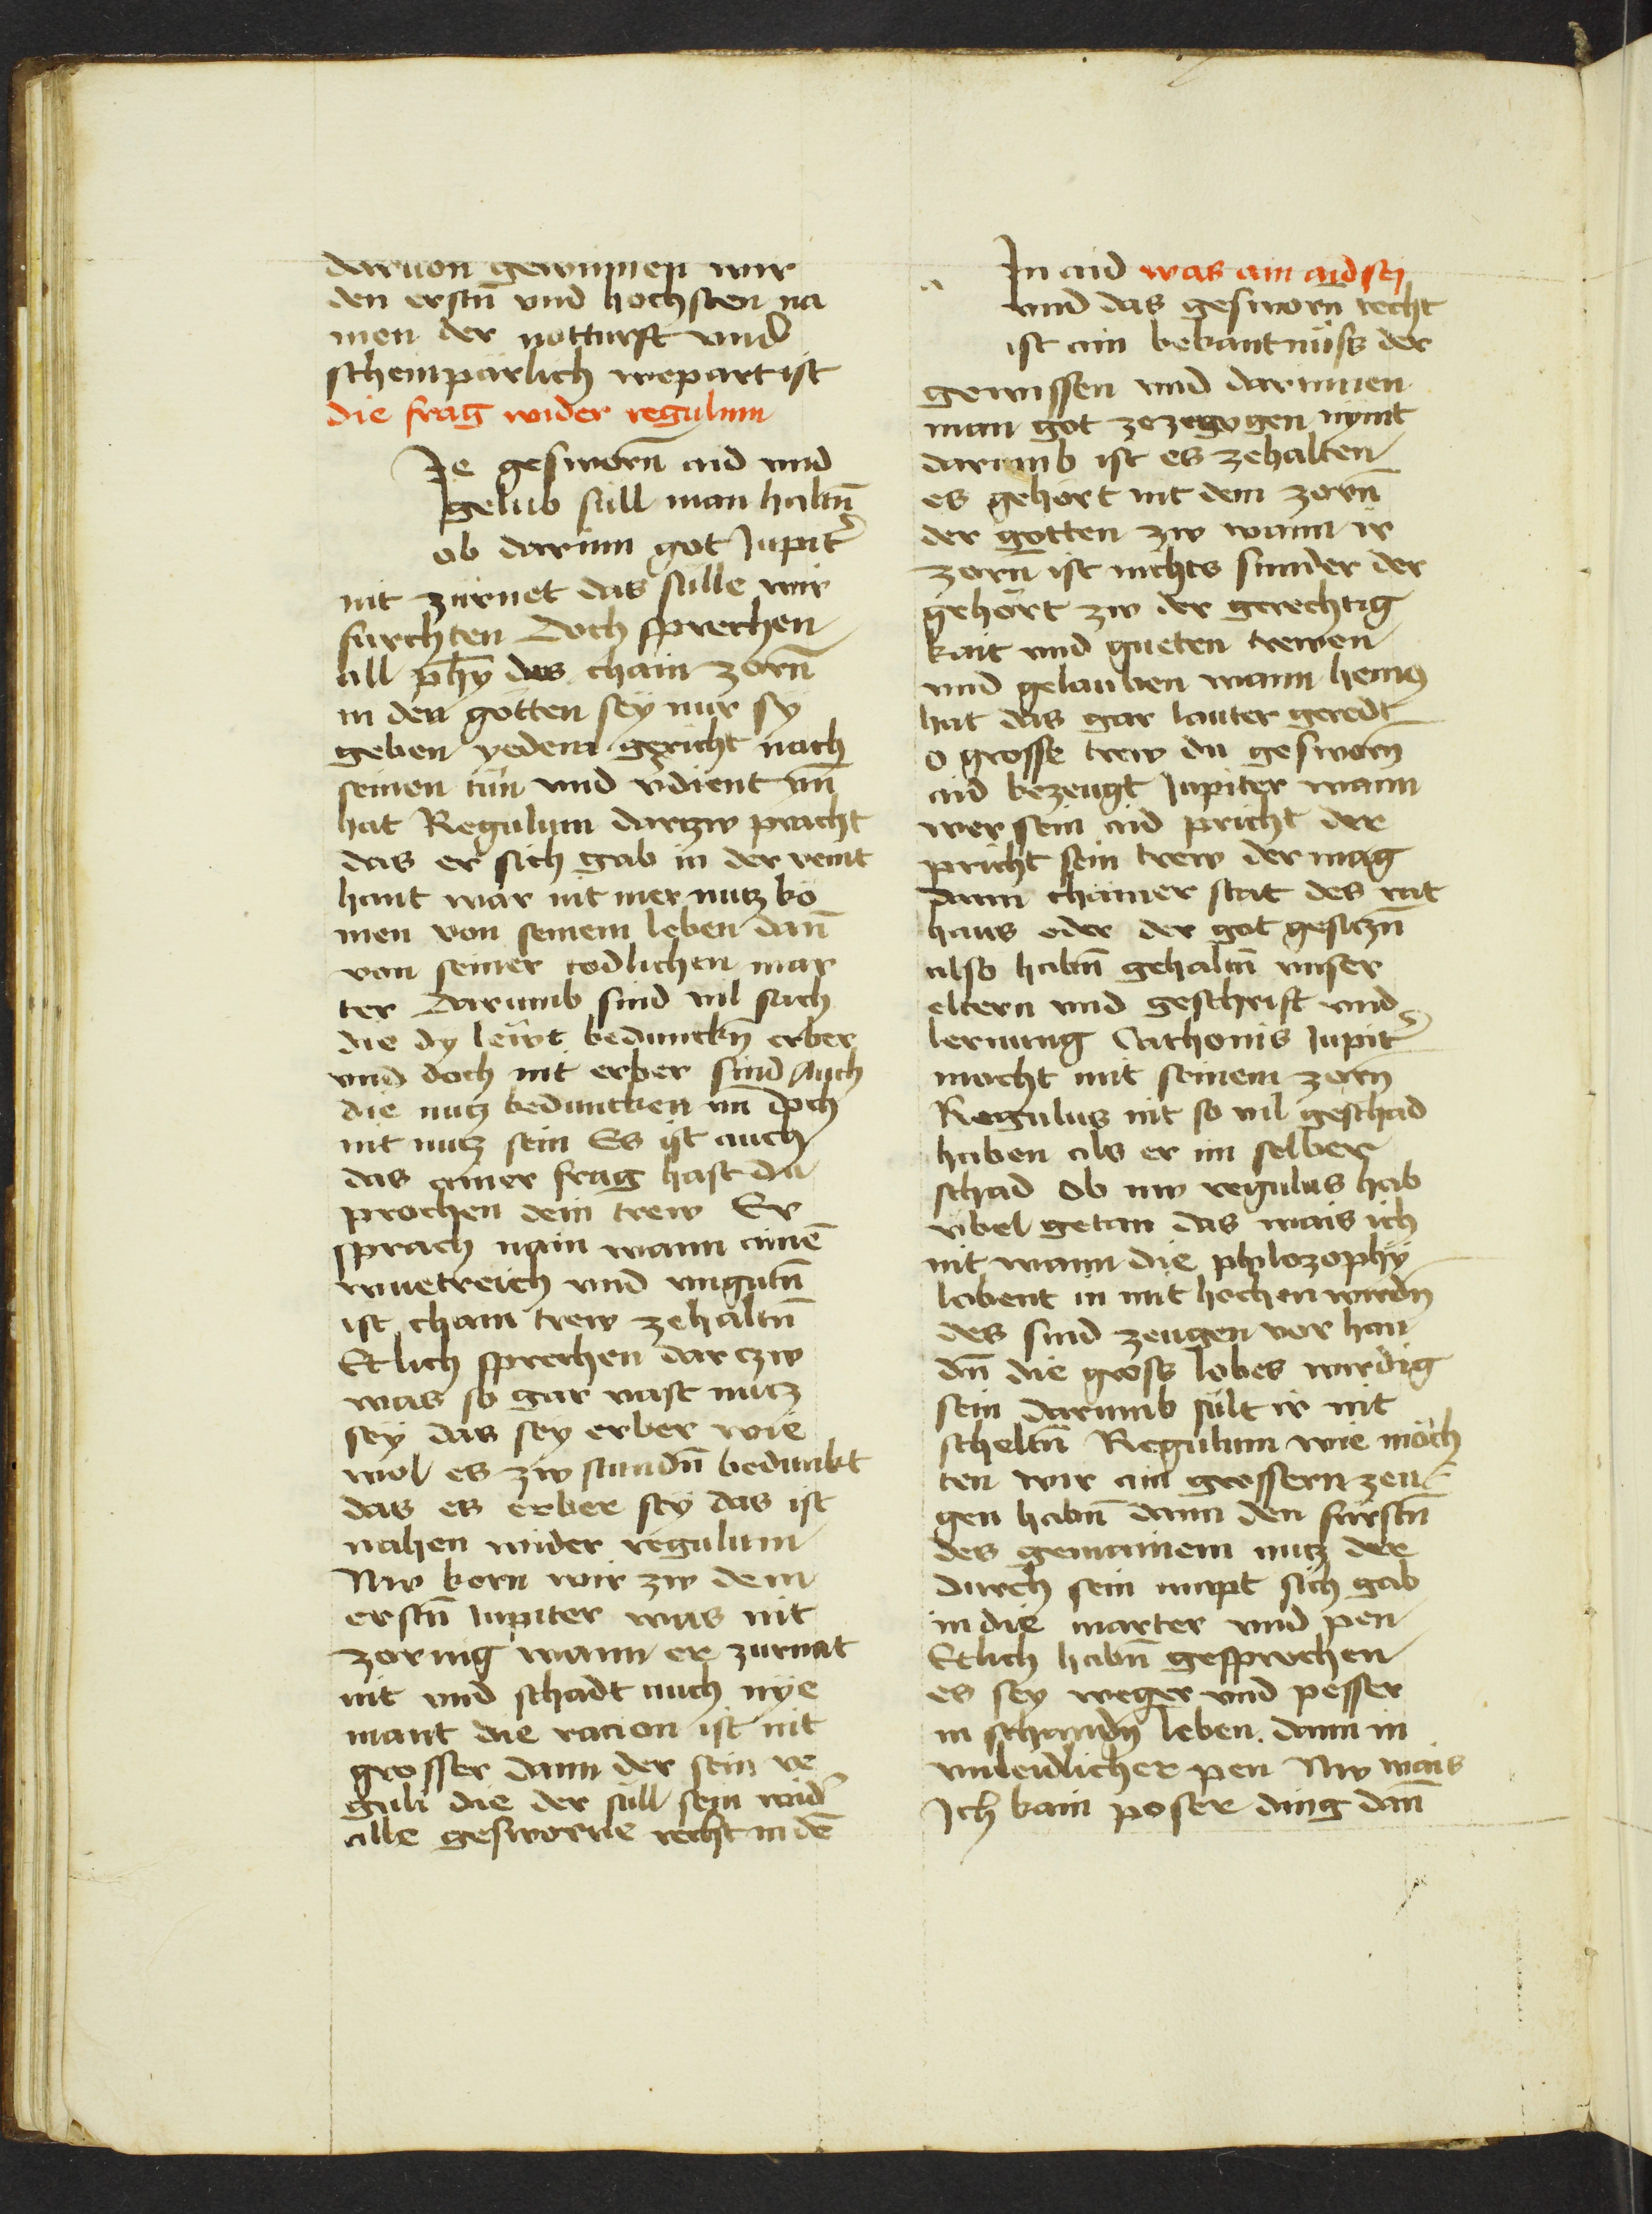 daruon gewinnen wir
den erstn̄ vnd hochsten na
men der notturft vnd
scheinpärlich wepart ist
die frag wider regulum
Je gesworn̄ aid vnd
gelub süll man haltn̄
ob darinn got Jupiter̉
nit zürnet das sülle wir
furchten Doch sprechen
all phȳ das chain zorn̄
in den gotten seÿ nur sÿ
geben yedem gericht nach
seinen tün vnd v̉dient vn̄
hat Regulum darczw pracht
das er sich gab in der veint
hant wär nit mer nutz kö
men von seinem leben dan̄
von seiner todlichen mar
ter Darumb sind vil sach
die dy lewt bedunckn̄ erber
vnd doch nit erber sind Auch
die nutz beduncken vn̄ doch
nit nutz sein Es ist auch
das ainer frag hast du
prochen dein trew Er
sprach nain wann ainē
wuetreich vnd vngutn̄
ist chain trew zehaltn̄
Etlich sprechen dar czw
was so gar vast nutz
seÿ das seÿ erber wie
wol es zw stundn̄ bedunkt
das es erber seÿ das ist
nahen wider regulum
Nw korn wir zw dem
erstn̄ Jupiter was nit
zornig wann er zurnat
nit vnd schadt auch nÿe
mant die racion ist nit
grosser dann der sein re
guli die der süll sein wider̉
alle gesworne recht in dē
In aid was ain aid seÿ
vnd das gesworn̄ recht
ist ain bekantnüss der
gewissen vnd darinnen
man got zezewgen nÿmt
darumb ist es zehalten
es gehört nit dem zorn̄
der gotten zw wann ir
zorn̄ ist nichts sunder der
gehört zw der gerechtig
kait vnd gueten trewen
vnd gelauben wann hemꝰ
hat das gar lauter geredt
o grosse trew du gesworn̄
aid bezeugt Jupiter wann
wer sein aid pricht der
pricht sein trew der mag
dann chainer stat des rat
haus oder der got gesiczn̄
also habn̄ gehaltn̄ vnser
eltern vnd geschrift vnd
lernung Cathonis Jupiter̉
macht mit seinem zorn
Regulus nit so vil geschad
haben als er im selber
schad Ob nw regulus hab
vbel getan das wais ich
nit wann die philozophÿ
lobent in mit hochen wirdn̄
des sind zeugen vor han
dn̄ die gross lobes wirdig
sein darumb sült ir nit
scheltn̄ Regulum wie möch
ten wir ain grossern zeu
gen habn̄ dann den fürstn̄
des gemainem nutz der
durch sein ampt sich gab
in die marter vnd pen
Etlich habn̄ gesprochen
es seÿ weger vnd pesser
in schandn̄ leben. dann in
vnleidlicher pen Nw wais
Ich kain poser ding dan̄